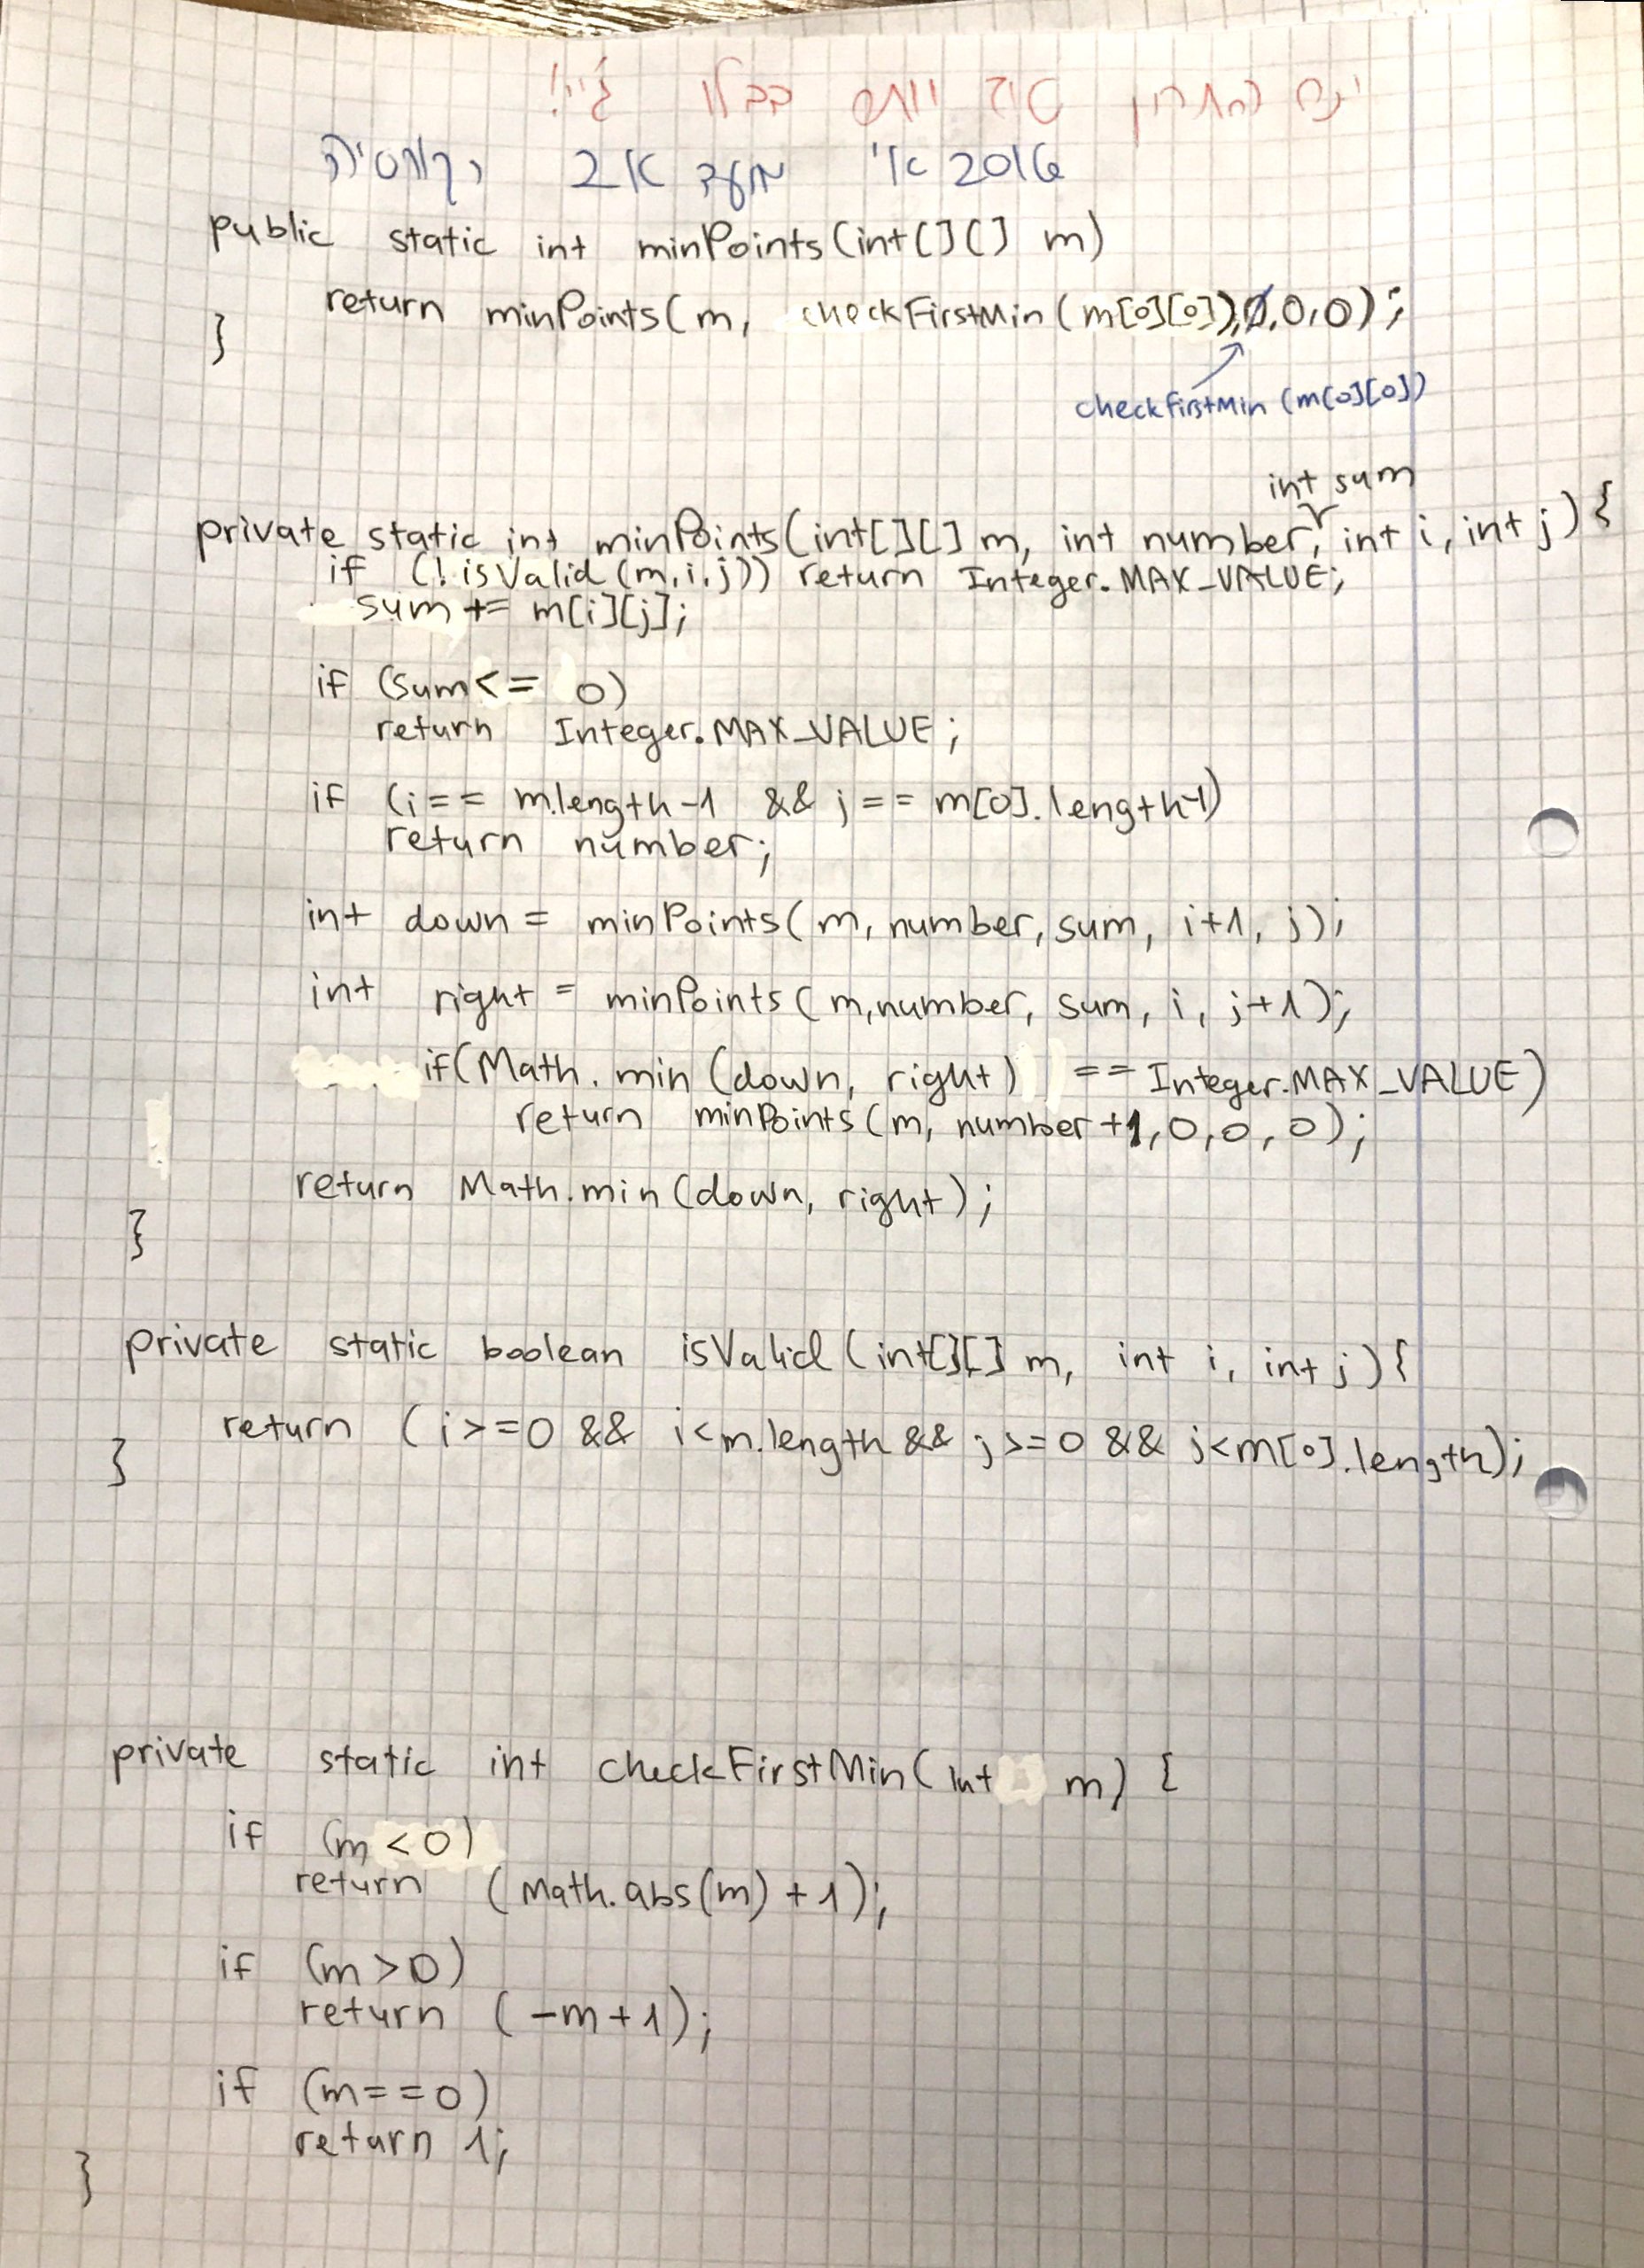 יש פתרון טוב יותר בבלוג!
2016 א' מועד 2א רקורסיה
public static int minPoints(int[][] m)
return minPoints(m, checkFirstMin(m[0][0]),0,0,0);
}
checkFirstMin(m[0][0])
int sum
private static int minPoints(int[][] m, int number, int i, int j) {
if (!isValid(m,i,j)) return Integer.MAX_VALUE;
sum += m[i][j];
if (sum<= 0)
return Integer.MAX_VALUE;
if (i== m.length-1 && j== m[0].length-1)
return number;
int down = minPoints(m, number, sum, i+1, j);
int right = minPoints(m,number, sum, i, j+1);
if(Math.min(down, right) == Integer.MAX_VALUE)
return minPoints(m, number+1,0,0,0);
return Math.min(down, right);
}
private static boolean isValid(int[][] m, int i, int j){
return (i>=0 && i<m.length && j>=0 && j<m[0].length);
}
private static int checkFirstMin(int m) {
if (m<0)
return (Math.abs(m)+1);
if (m>0)
return (-m+1);
if (m==0)
return 1;
}